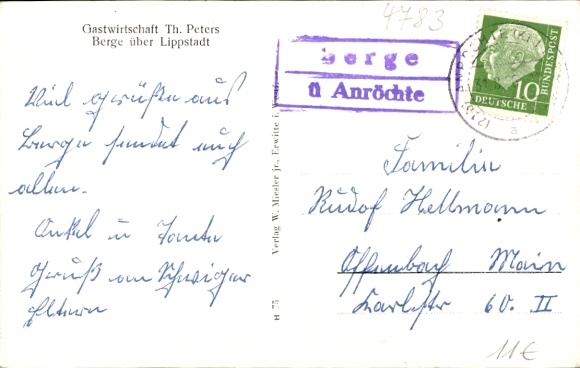 Gastwirtschaft Th. Peters
Berge über Lippstadt
4783
Berge
ü Anröchte
10
DEUTSCHE
BUNDESPOST
a
Viel Grüßen aus
Berge sendet euch
allen.
Onkel u Tante
Gruß an Schwieger
Eltern
Verlag W. Miesler jr., Erwitte i. Westf.
H 75
Familie
Rudof Hellmann
Offenbach Main
Karlstr 60. II
11€